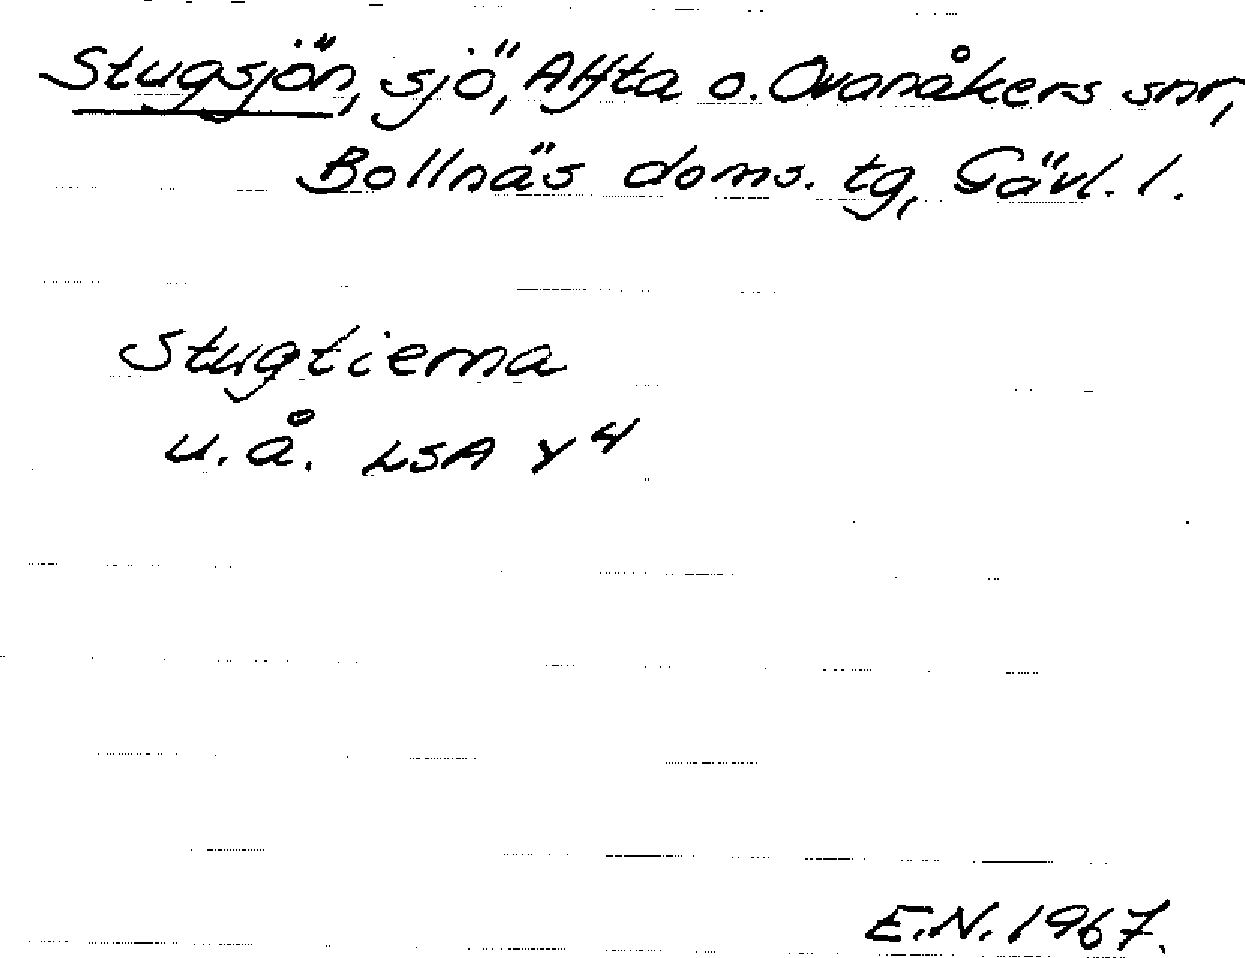 Stugsjön, sjö, Alfta o. Ovanåkers snr,
Bollnäs doms. tg, Gävl. l.
Stugtierna
u.å. LSA Y 4
E.N. 1967.